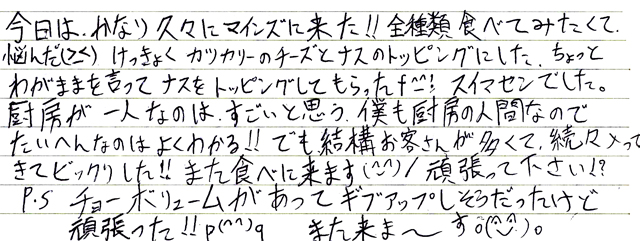 今日は、かなり久々にマインズに来た!!全種類食べてみたくて、
悩んだ(>_<) けっきょく カツカリーのチーズとナスのトッピングにした、ちょっと
わがままを言って ナスをトッピングしてもらったf^^! スイマセンでした。
厨房が 一人なのは、すごいと思う、僕も厨房の人間なので
たいへんなのはよくわかる!! でも結構お客さんが多くて、続々入って
きてビックリした!! また食べに来ます(^^)/ 頑張って下さい!?
P.S チョーボリュームがあってギブアップしそうだったけど
頑張った!! p(^^)q また来ま〜す。(^^)。